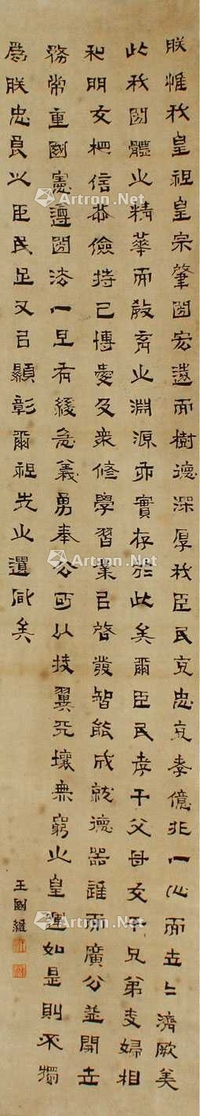 朕惟我皇祖皇宗肇國宏遠而樹德深厚我臣民克忠克孝億兆一心而世々濟厥美
此我國體之精華而教育之淵源亦實存於此矣爾臣民孝于父母友于兄弟夫婦相
和朋友相信恭儉持己博愛及眾修學習業㠯啓發智能成就德器進而廣公益開世
務常重國憲遵國法一旦有緩急義勇奉公可以扶翼天壤無窮之皇運如是則不獨
為朕忠良之臣民足又㠯顯彰爾祖先之遺風矣
王國維
Artron.Net
Artron.Net
Artron.Net
Artron.Net